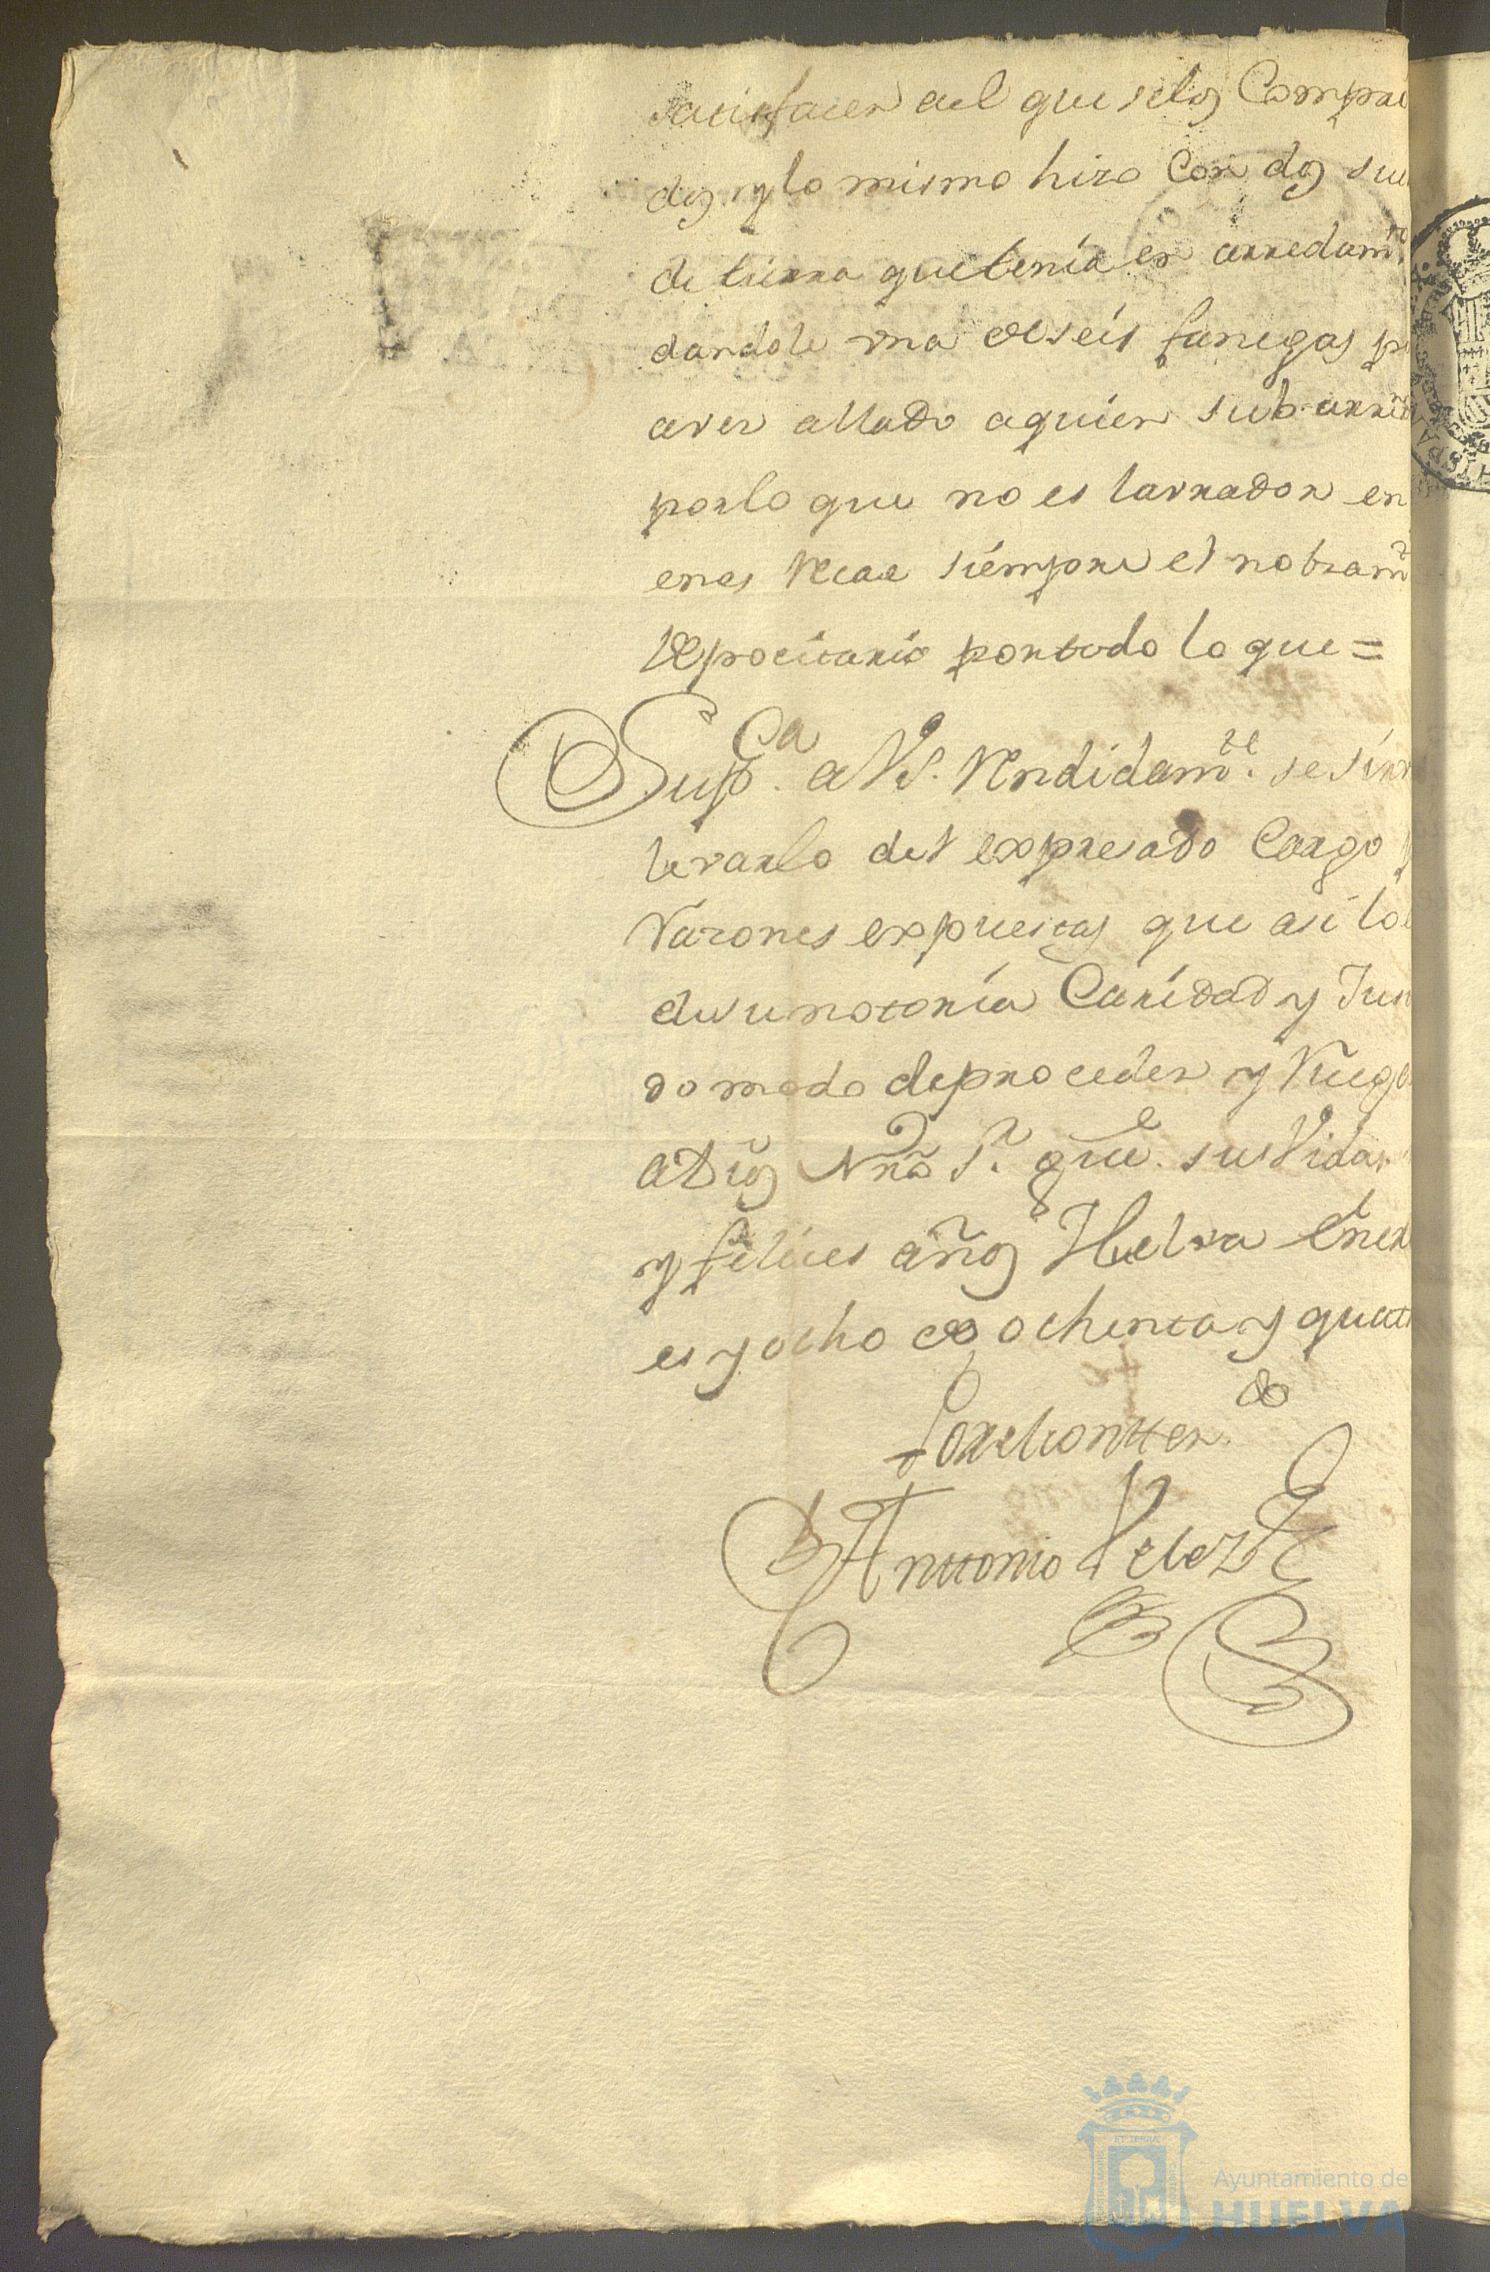 satisfacer al que se los Compra
dos, y lo mismo hizo Con dos sue
de tierra que tenía en arredam.to
dandole una de seis fanegas p
aver allado aquien sub-arre
por lo que no es lavrador en
enes recae siempre el nobram.to
depocitario por todo lo que =
Sup.ca a VS. rendidam.te se sirv
levarlo del expresado Cargo p
razones expuestas que asi lo
de su notoria Caridad y Jus
do modo de proceder y ruego
a Dios Nro Sr. gue. sus Vidas
y felices años Huelva Ener
es y ocho de ochenta y quat
Por el contten.do
Anttonio Velez
Ayuntamiento de
HUELVA